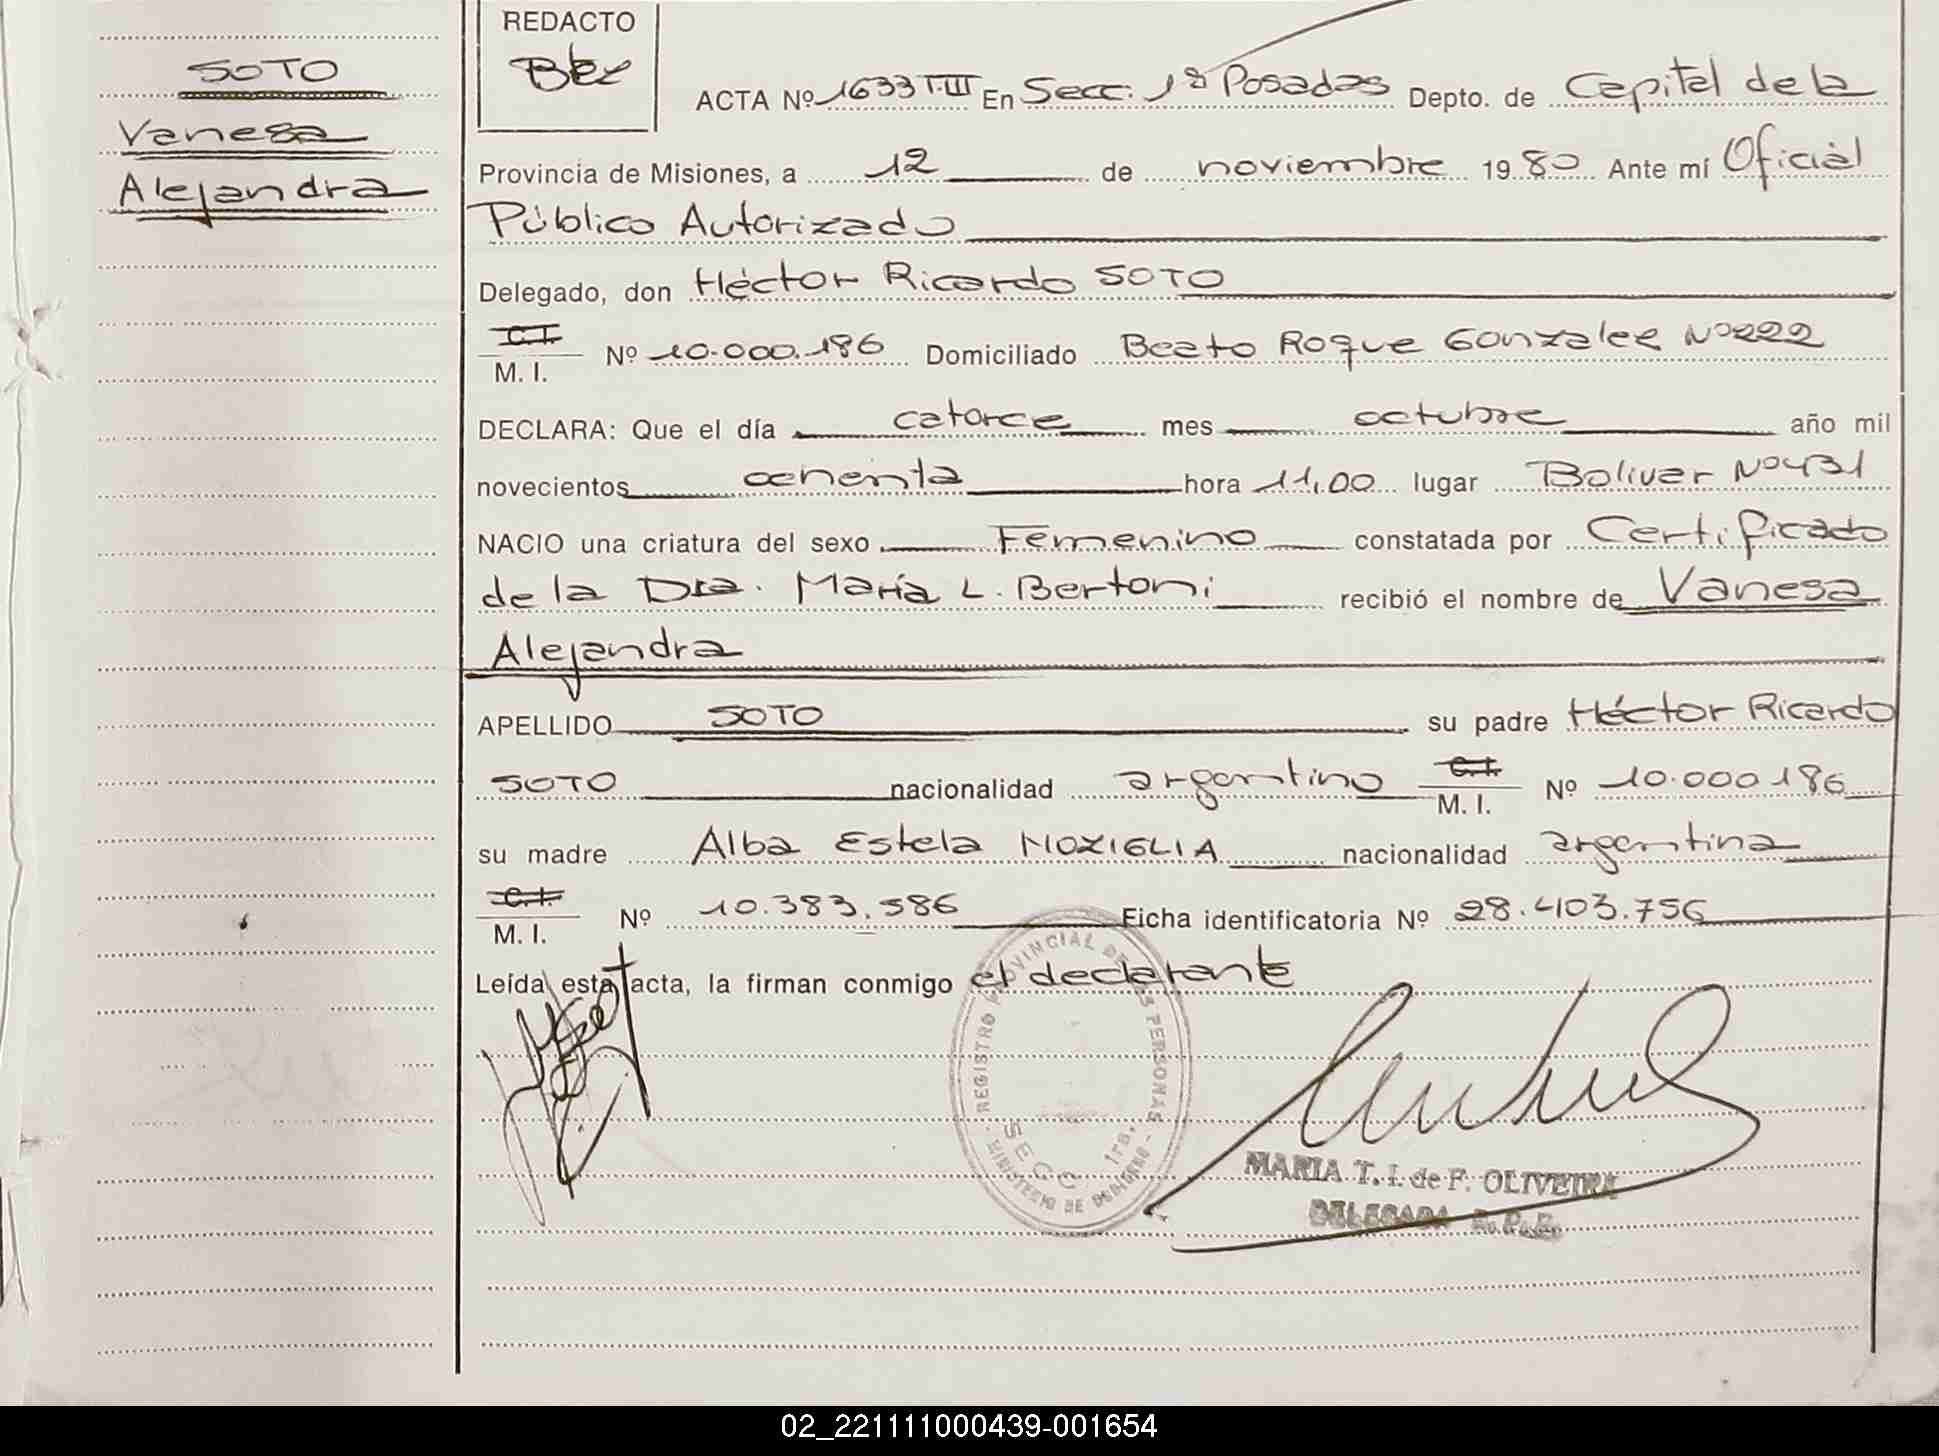 SOTO
Vanesa
Alejandra
REDACTO
ACTA Nº 1633 T.III En Secc. 1ª Posadas Depto. de Capital de la
Provincia de Misiones, a 12 de noviembre 1980 Ante mí Oficial
Público Autorizado
Delegado, don Héctor Ricardo SOTO
C.I.
M. I. Nº 10.000.186 Domiciliado Beato Roque Gonzalez Nº 222
DECLARA: Que el día catorce mes octubre año mil
novecientos ochenta hora 11,00 lugar Bolivar Nº 431
NACIO una criatura del sexo Femenino constatada por Certificado
de la Dra. María L. Bertoni recibió el nombre de Vanesa
Alejandra
APELLIDO SOTO su padre Héctor Ricardo
SOTO nacionalidad argentino C.I. M. I. Nº 10.000186
su madre Alba Estela MOXIGLIA nacionalidad argentina
C.I.
M. I. Nº 10.383.586 Ficha identificatoria Nº 28.403.756
Leída esta acta, la firman conmigo el declarante
REGISTRO PROVINCIAL DE LAS PERSONAS
SECC 1ra.
MINISTERIO DE GOBIERNO
MARIA T. I. de F. OLIVEIRA
DELEGADA R.P.P.
02_221111000439-001654